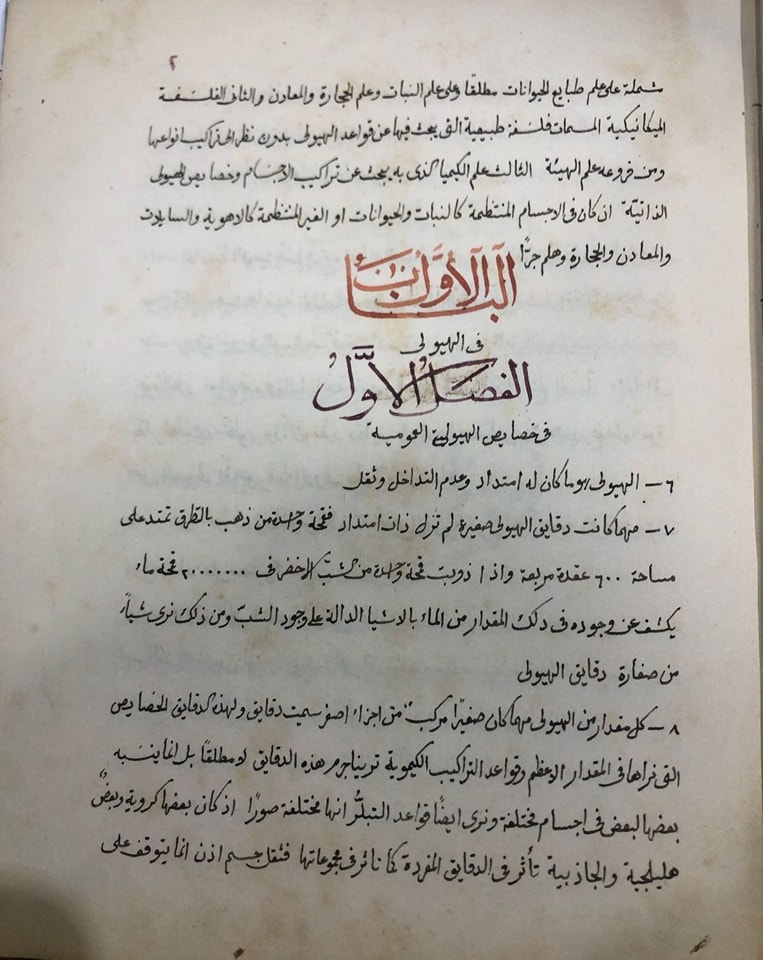 ٢
شملة على علم طبايع الحيوانات مطلقا وعلى علم النبات وعلم الحجارة والمعادن والثانى الفلسفة
الميكانيكية المسمات فلسفة طبيعية التى يبحث فيها عن قواعد الهيولى بدون نظر الى تراكيب انواعها
ومن فروعه علم الهيئة الثالث علم الكيميا الذى به يبحث عن تراكيب الاجسام وخصايص الهيولى
الذاتية ان كان فى الاجسام المنتظمة كالنبات والحيوانات او الغير المنتظمة كالاهوية والسايلات
والمعادن والحجارة وهلم جرًّا
الباب الأوَّل
فى الهيولى
الفصل الاوَّل
فى خصايص الهيولية العمومية
٦ – الهيولى هو ما كان له امتداد وعدم التداخل وثقل
٧ – مهما كانت دقايق الهيولى صغيرة لم تزل ذات امتداد فقمحة واحدة من ذهب بالتطرق تمتد على
مساحة ٦٠٠ عقدة مربعة واذا ذوبت قمحة واحدة من الشبّ الاخضر فى ٢٠٠٠٠٠٠٠ قمحة ماء
يكشف عن وجوده فى ذلك المقدار من الماء بالاشيا الدالة على وجود الشبّ ومن ذلك نرى شياءً
من صغارة دقايق الهيولى
٨ – كل مقدار من الهيولى مهما كان صغيرًا مركبٌ من اجزاء اصغر سميت دقايق ولهذه الدقايق الخصايص
التى نراها فى المقدار الاعظم وقواعد التراكيب الكيموية ترينا جرم هذه الدقايق لا مطلقًا بل انما ينسبه
بعضها لبعض فى اجسام مختلفة ونرى ايضًا قواعد التبلّر انها مختلفة صورًا اذ كان بعضها كروية وبعضٌ
هليلجية والجاذبية تأثر فى الدقايق المفردة كما تاثر فى مجموعاتها فثقل جسم اذن انما يتوقف على